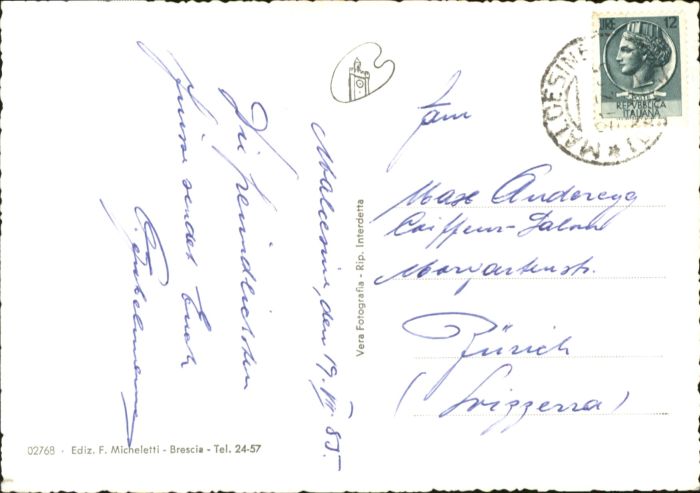 Malcesine, den 19. VII. 55.
Die freundlichsten
Grüsse sendet Euch
Fam.
Max Anderegg
Coiffeur-Salon
Morgartenstr.
Zürich
(Svizzera)
Vera Fotografia - Rip. Interdetta
02768 - Ediz. F. Micheletti - Brescia - Tel. 24-57
LIRE 12
REPVBBLICA
ITALIANA
MALCESINE